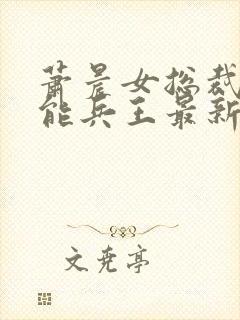 萧晨女总裁
能兵王最新
文尧亭